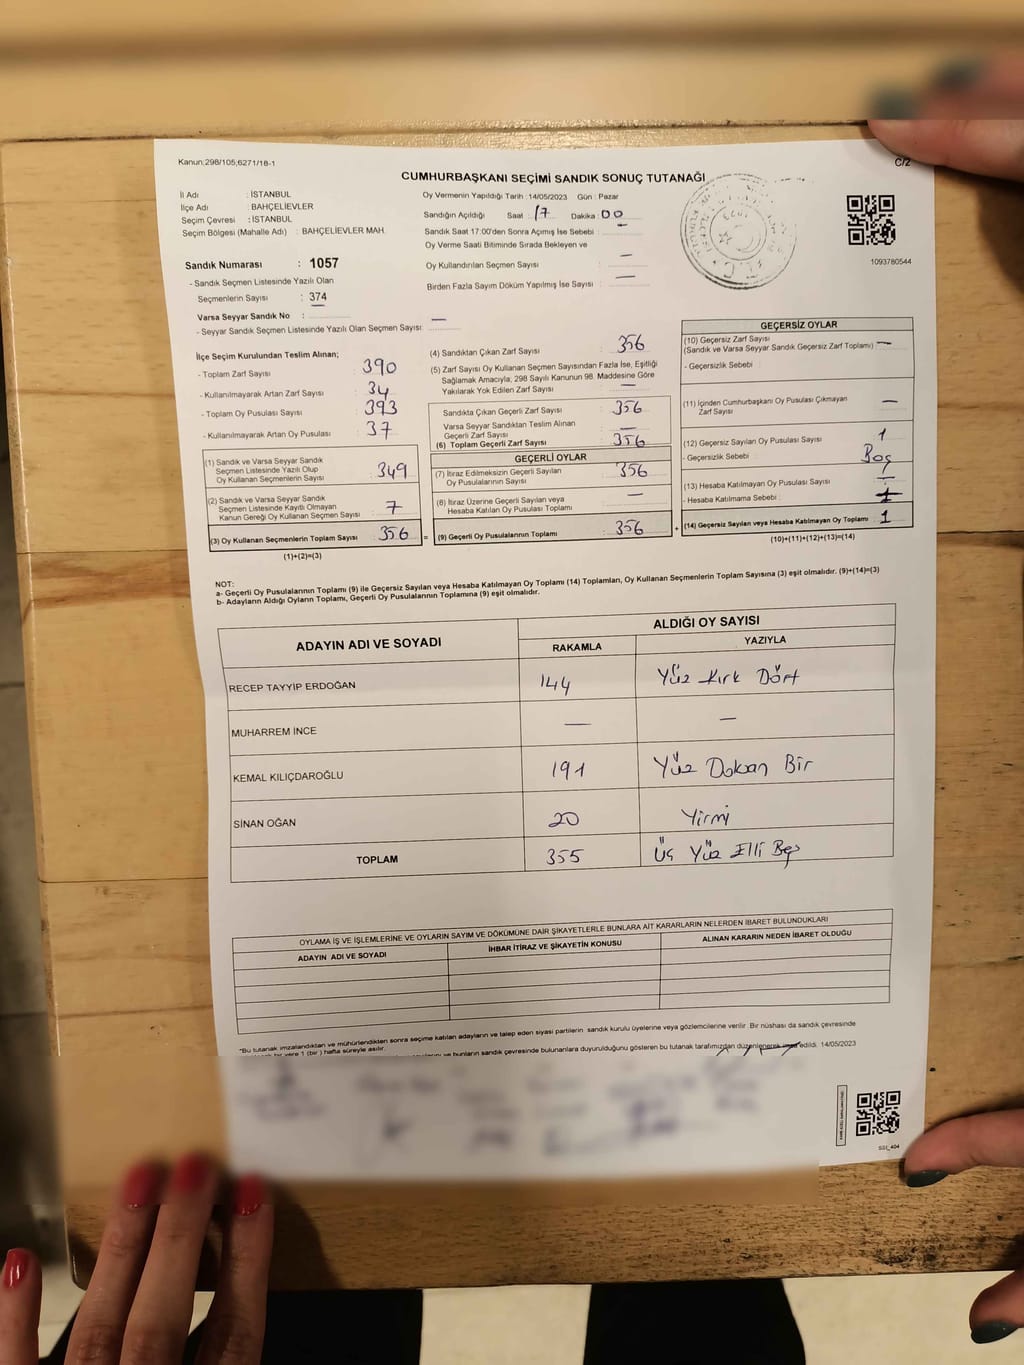 Kanun:298/105;6271/18-1
C/2
CUMHURBAŞKANI SEÇİMİ SANDIK SONUÇ TUTANAĞI
İl Adı : İSTANBUL
İlçe Adı : BAHÇELİEVLER
Seçim Çevresi : İSTANBUL
Seçim Bölgesi (Mahalle Adı) : BAHÇELİEVLER MAH.
Oy Vermenin Yapıldığı Tarih : 14/05/2023 Gün : Pazar
Sandığın Açıldığı Saat : 17 Dakika : 00
Sandık Saat 17:00'den Sonra Açımış İse Sebebi : —
Oy Verme Saati Bitiminde Sırada Bekleyen ve
Oy Kullandırılan Seçmen Sayısı : —
Birden Fazla Sayım Döküm Yapılmış İse Sayısı : —
1093780544
Sandık Numarası : 1057
- Sandık Seçmen Listesinde Yazılı Olan
Seçmenlerin Sayısı : 374
Varsa Seyyar Sandık No : —
- Seyyar Sandık Seçmen Listesinde Yazılı Olan Seçmen Sayısı: —
İlçe Seçim Kurulundan Teslim Alınan;
- Toplam Zarf Sayısı : 390
- Kullanılmayarak Artan Zarf Sayısı : 34
- Toplam Oy Pusulası Sayısı : 393
- Kullanılmayarak Artan Oy Pusulası : 37
(1) Sandık ve Varsa Seyyar Sandık
Seçmen Listesinde Yazılı Olup
Oy Kullanan Seçmenlerin Sayısı : 349
(2) Sandık ve Varsa Seyyar Sandık
Seçmen Listesinde Kayıtlı Olmayan
Kanun Gereği Oy Kullanan Seçmen Sayısı : 7
(3) Oy Kullanan Seçmenlerin Toplam Sayısı : 356
(1)+(2)=(3)
(4) Sandıktan Çıkan Zarf Sayısı : 356
(5) Zarf Sayısı Oy Kullanan Seçmen Sayısından Fazla İse, Eşitliği
Sağlamak Amacıyla; 298 Sayılı Kanunun 98. Maddesine Göre
Yakılarak Yok Edilen Zarf Sayısı : —
Sandıkta Çıkan Geçerli Zarf Sayısı : 356
Varsa Seyyar Sandıktan Teslim Alınan
Geçerli Zarf Sayısı : —
(6) Toplam Geçerli Zarf Sayısı : 356
GEÇERLİ OYLAR
(7) İtiraz Edilmeksizin Geçerli Sayılan
Oy Pusulalarının Sayısı : 356
(8) İtiraz Üzerine Geçerli Sayılan veya
Hesaba Katılan Oy Pusulası Toplamı : —
= (9) Geçerli Oy Pusulalarının Toplamı : 356 +
GEÇERSİZ OYLAR
(10) Geçersiz Zarf Sayısı
(Sandık ve Varsa Seyyar Sandık Geçersiz Zarf Toplamı) : —
- Geçersizlik Sebebi :
(11) İçinden Cumhurbaşkanı Oy Pusulası Çıkmayan
Zarf Sayısı : —
(12) Geçersiz Sayılan Oy Pusulası Sayısı : 1
- Geçersizlik Sebebi : Boş
(13) Hesaba Katılmayan Oy Pusulası Sayısı : —
- Hesaba Katılmama Sebebi :
(14) Geçersiz Sayılan veya Hesaba Katılmayan Oy Toplamı : 1
(10)+(11)+(12)+(13)=(14)
NOT:
a- Geçerli Oy Pusulalarının Toplamı (9) ile Geçersiz Sayılan veya Hesaba Katılmayan Oy Toplamı (14) Toplamları, Oy Kullanan Seçmenlerin Toplam Sayısına (3) eşit olmalıdır. (9)+(14)=(3)
b- Adayların Aldığı Oyların Toplamı, Geçerli Oy Pusulalarının Toplamına (9) eşit olmalıdır.
ADAYIN ADI VE SOYADI ALDIĞI OY SAYISI
RAKAMLA YAZIYLA
RECEP TAYYİP ERDOĞAN 144 Yüz Kırk Dört
MUHARREM İNCE — —
KEMAL KILIÇDAROĞLU 191 Yüz Doksan Bir
SİNAN OĞAN 20 Yirmi
TOPLAM 355 Üç Yüz Elli Beş
OYLAMA İŞ VE İŞLEMLERİNE VE OYLARIN SAYIM VE DÖKÜMÜNE DAİR ŞİKAYETLERLE BUNLARA AİT KARARLARIN NELERDEN İBARET BULUNDUKLARI
ADAYIN ADI VE SOYADI İHBAR İTİRAZ VE ŞİKAYETİN KONUSU ALINAN KARARIN NEDEN İBARET OLDUĞU
*Bu tutanak imzalandıktan ve mühürlendikten sonra seçime katılan adayların ve talep eden siyasi partilerin sandık kurulu üyelerine veya gözlemcilerine verilir. Bir nüshası da sandık çevresinde
bir yere 1 (bir) hafta süreyle asılır.
bunların sandık çevresinde bulunanlara duyurulduğunu gösteren bu tutanak tarafımızdan düzenlenerek edildi. 14/05/2023
SSt_404